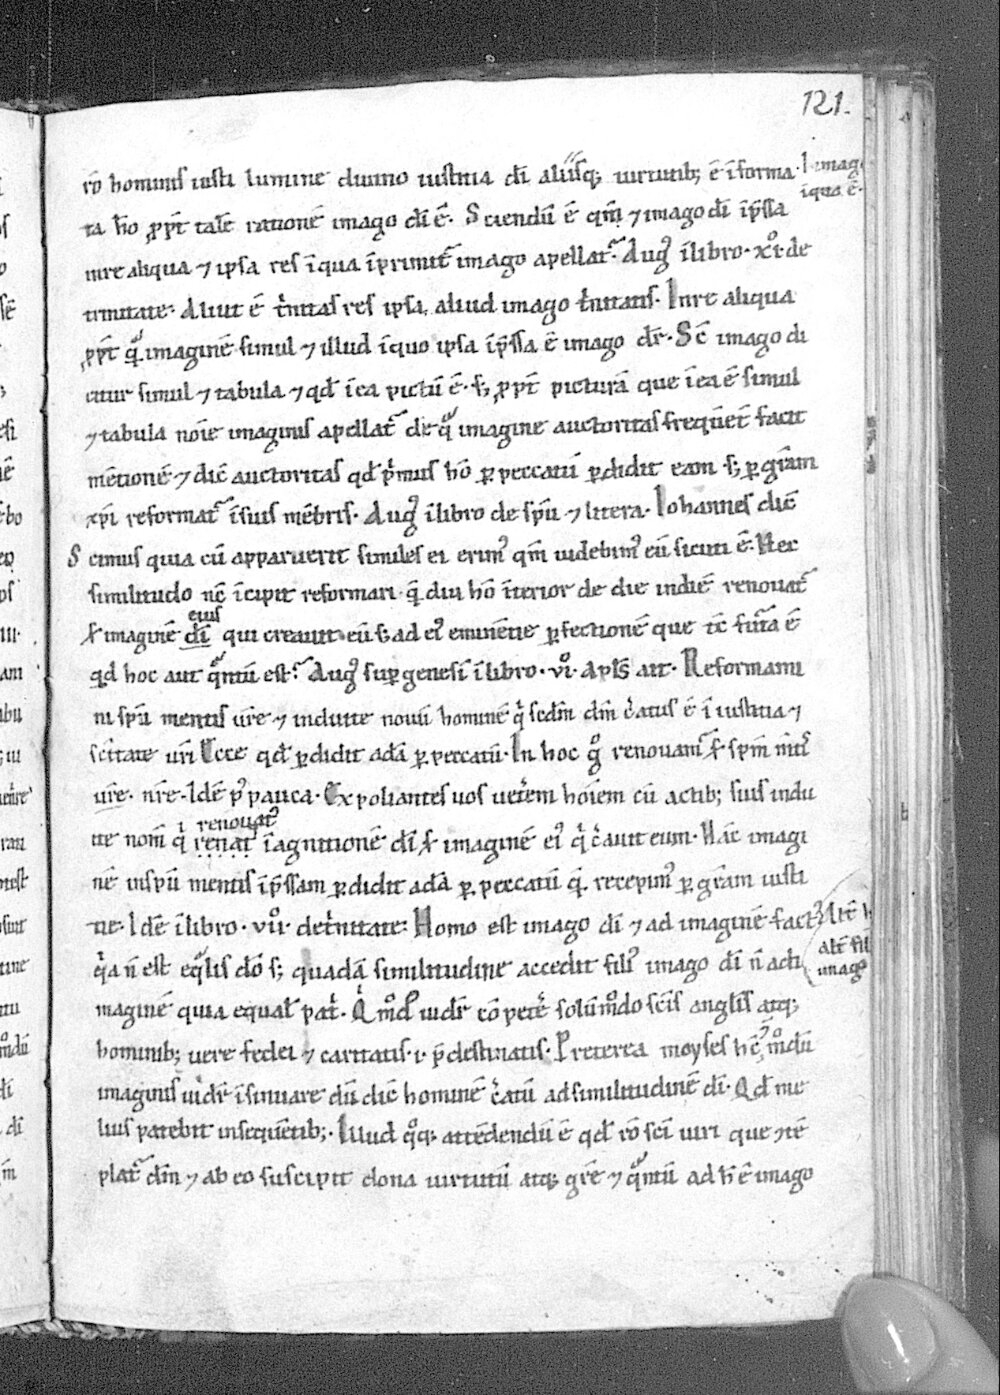 121.
rō hominis iusti lumine diuino iusticia dī aliisq; uirtutib; ē īforma
ta hō ꝓpt̄ talē rationē imago dī ē. Sciendū ē qm̄ ⁊ imago dī īp̄ssa
inre aliqua ⁊ ipsa res īqua īprimit᷑ imago apellat᷑. Augꝰ īlibro .xıº. de
trinitate. Aliut ē tⁱnitas res ipsa, aliud imago tⁱnitatis. Inre aliqua
ꝓpt̄ qᵃ imaginē simul ⁊ illud īquo ipsa īp̄ssa ē imago dr̄. Sic̄ imago di
citur simul ⁊ tabula ⁊ qd̄ īea pictū ē. s; ꝓpt̄ picturā que īea ē simul
⁊ tabula noīe imaginis apellat᷑ de qᵃ imagine auctoritas freq̄nt̄ facit
mētionē ⁊ dic̄ auctoritas qd̄ pⁱmus hō ꝑ peccatū ꝑdidit eam s; ꝑ gr̄am
xp̄i reformat᷑ īsuis mēbris. Augꝰ īlibro de sp̄u ⁊ litera. Iohannes dic̄
Scimus quia cū apparuerit similes ei erimꝰ qm̄ uidebimꝰ eū sicuti ē. Hec
similitudo nc̄ īcipit reformari qᵃ diu hō īterior de die indiē renouat᷑
scdm imaginē dī eius qui creauit eū s; ad eiꝰ eminētie ꝑfectionē que tc̄ futᵃa ē
qd hoc aut qᵃntū est? Augꝰ sup genesī īlibro .vıº. Apl̄s ait. Reformami
ni sp̄u mentis ur̄e ⁊ induite nouū hominē qⁱ scdm̄ dm̄ cⁱatus ē ī iustitia ⁊
sc̄itate ueri Ecce qd̄ ꝑdidit adā ꝑ peccatū. In hoc gº renouam᷑ scdm sp̄m m̄tis
ur̄e. nr̄e. Idē pꝰ pauca. Expoliantes uos uetⁱem hoīem cū actib; suis indu
ite nouū qⁱ renat᷑ i renouat᷑ īagnitionē dī scdm imaginē eiꝰ qⁱ cⁱauit eum. Hāc imagi
nē insp̄u mentis īp̄ssam ꝑdidit adā ꝑ peccatū qᵃ recepimꝰ ꝑ gr̄am iusti
tie. Idē īlibro .vııº. detⁱnitate. Homo est imago dī ⁊ ad imaginē factꝰ
qⁱa n̄ est eq̄lis dō s; quadā similitudine accedit filiꝰ imago dī n̄ adi
maginē quia equal̄ patⁱ. Qⁱ mºdº uidr̄ cōpetē solūmºdo sc̄is anglis atq;
hominib; uere fedei ⁊ caritatis .i. p̄destinatis. Preterea moyses hc̄ mºdū
imaginis uidr̄ īsinuare dū dic̄ hominē cⁱatū adsimilitudinē dī. Qd̄ me
lius patebit insequētib;. Illud qºq; attēdendū ē qd̄ rō sc̄i uiri que ⁊tē
plat᷑ dm̄ ⁊ ab eo suscipit dona uirtutū atq; grē ⁊ qᵃntū ad h̄ ē imago
.I. imag
īqua ē.
alit̄ fil
imago